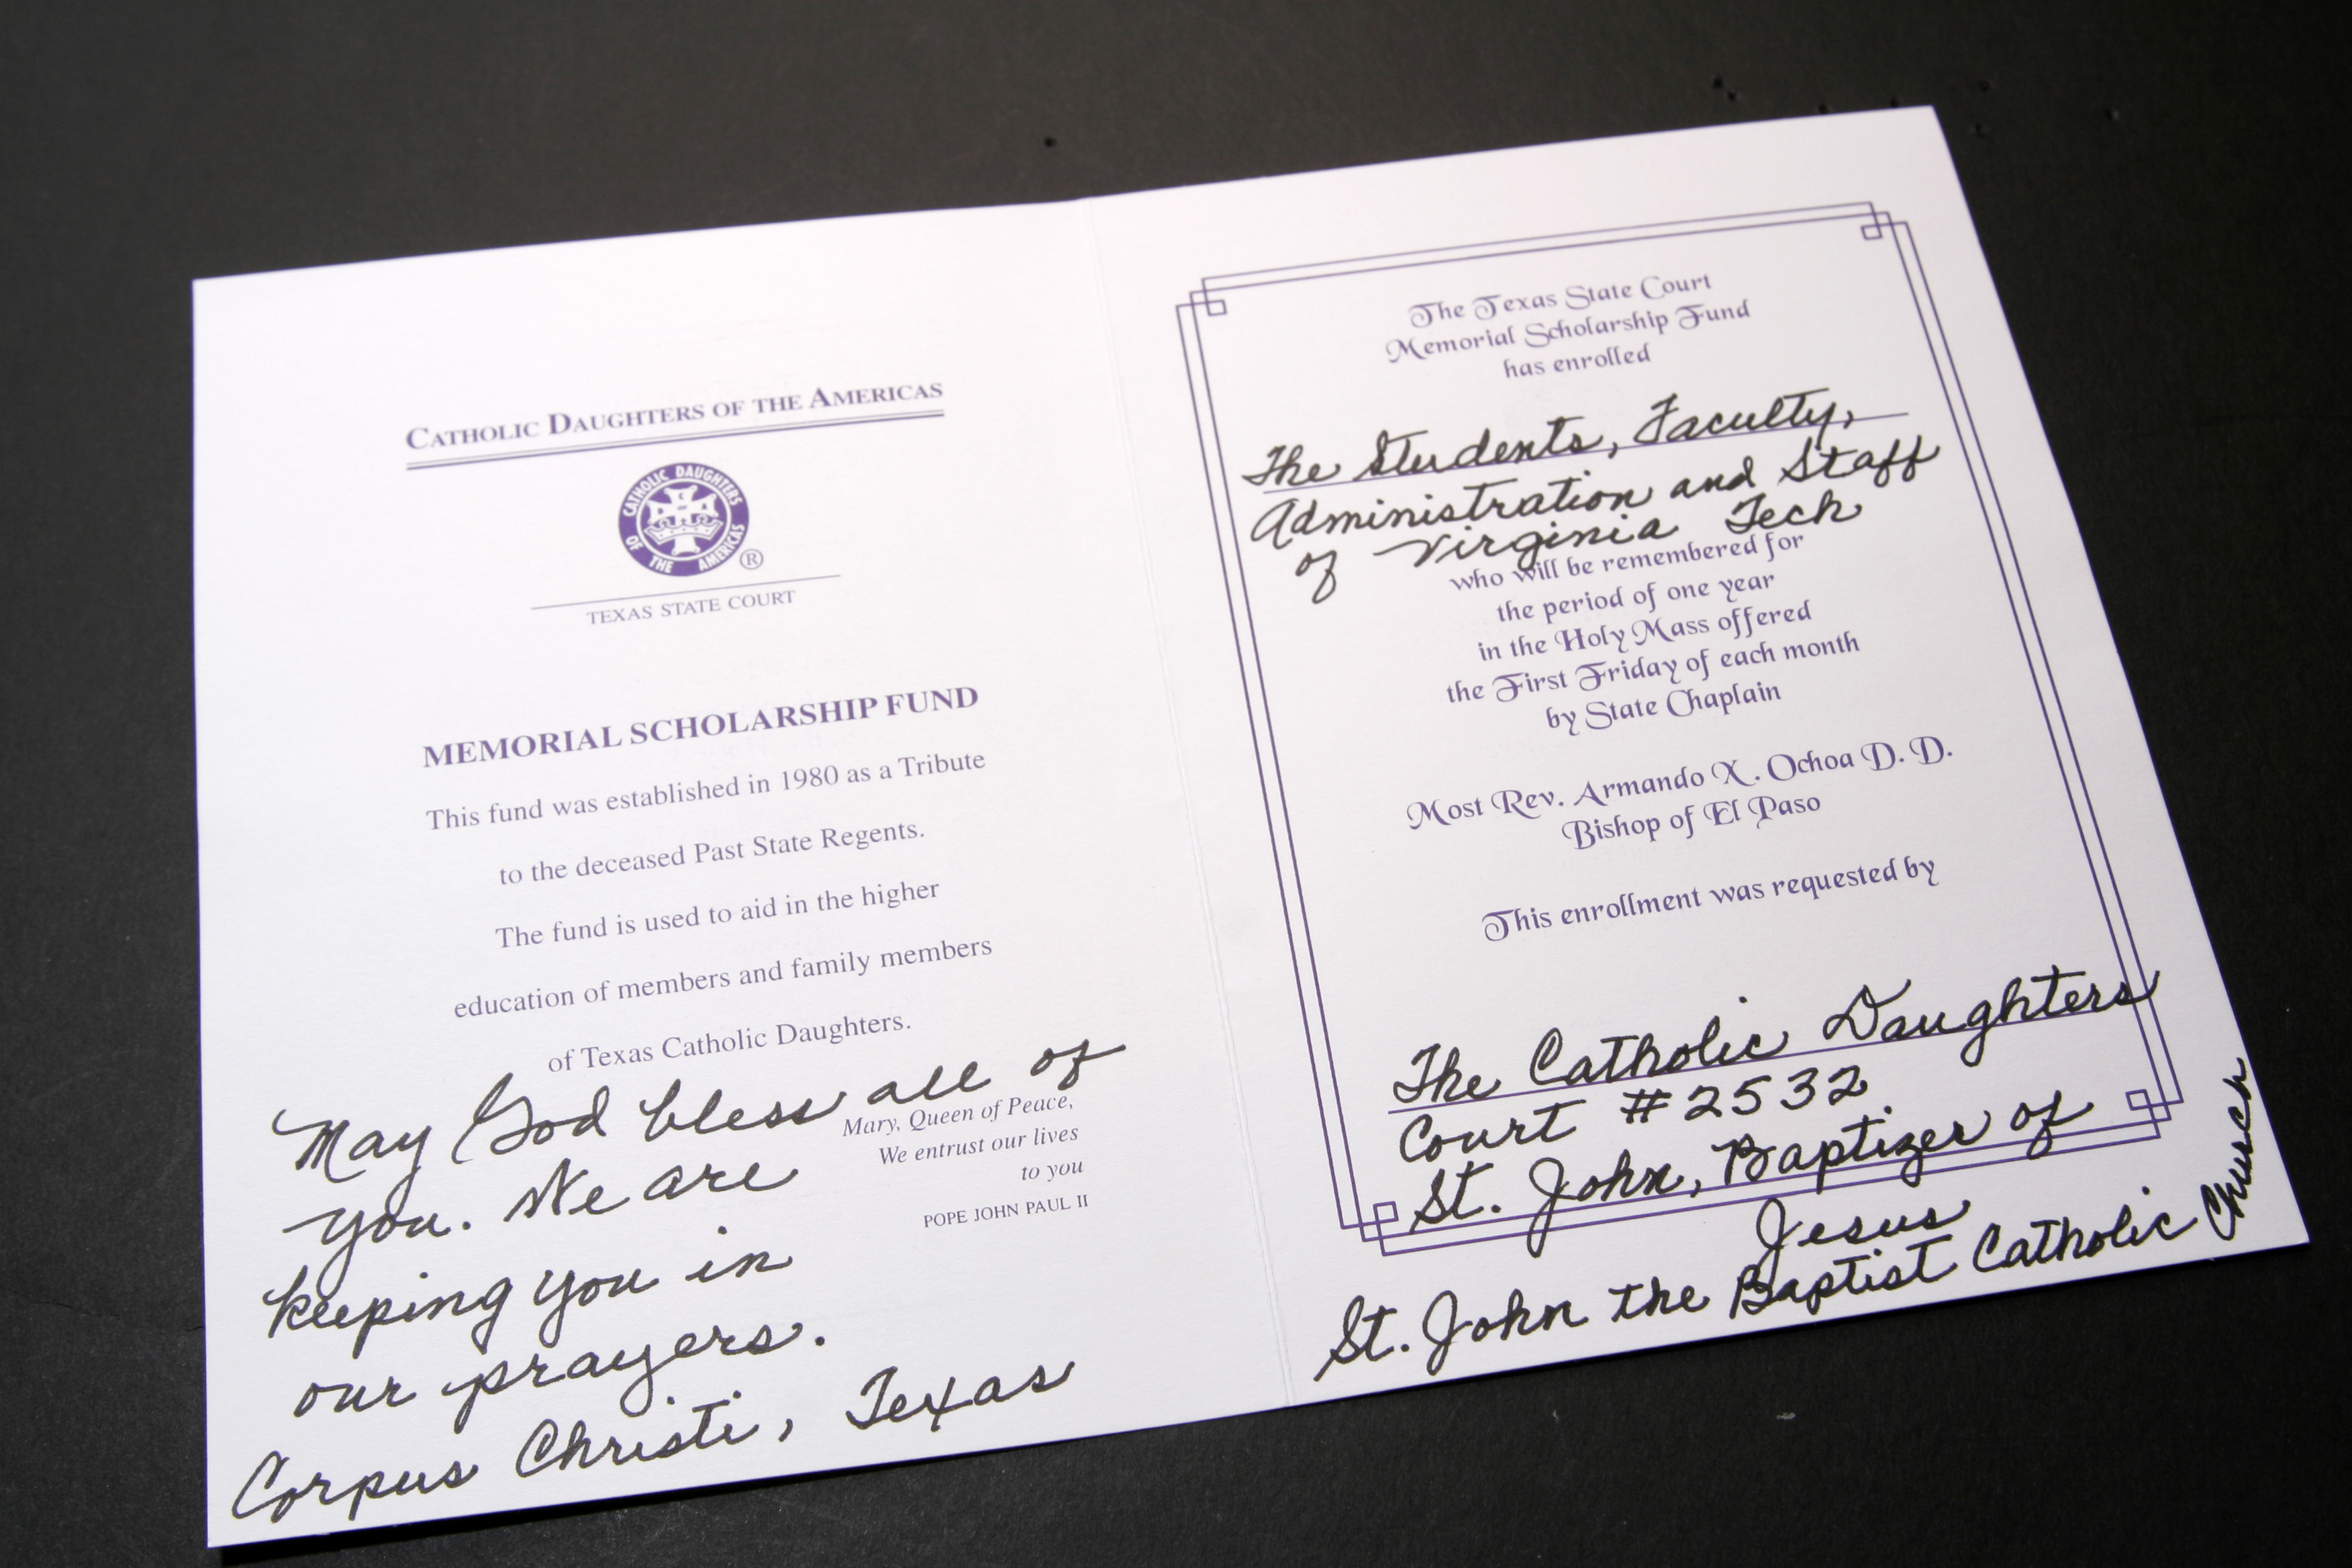 CATHOLIC DAUGHTERS OF THE AMERICAS
CATHOLIC DAUGHTERS OF THE AMERICAS
®
TEXAS STATE COURT
MEMORIAL SCHOLARSHIP FUND
This fund was established in 1980 as a Tribute
to the deceased Past State Regents.
The fund is used to aid in the higher
education of members and family members
of Texas Catholic Daughters.
Mary, Queen of Peace,
We entrust our lives
to you
POPE JOHN PAUL II
May God bless all of
you. We are
keeping you in
our prayers.
Corpus Christi, Texas
The Texas State Court
Memorial Scholarship Fund
has enrolled
The Students, Faculty,
Administration and Staff
of Virginia Tech
who will be remembered for
the period of one year
in the Holy Mass offered
the First Friday of each month
by State Chaplain
Most Rev. Armando X. Ochoa D. D.
Bishop of El Paso
This enrollment was requested by
The Catholic Daughters
Court #2532
St. John, Baptizer of
Jesus
St. John the Baptist Catholic Church